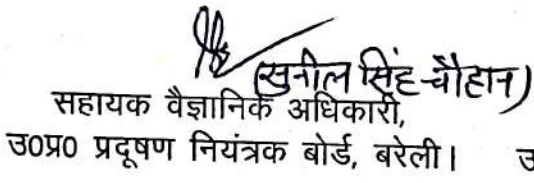 (सुनील सिंह चौहान)
सहायक वैज्ञानिक अधिकारी,
उ0प्र0 प्रदूषण नियंत्रक बोर्ड, बरेली। उ